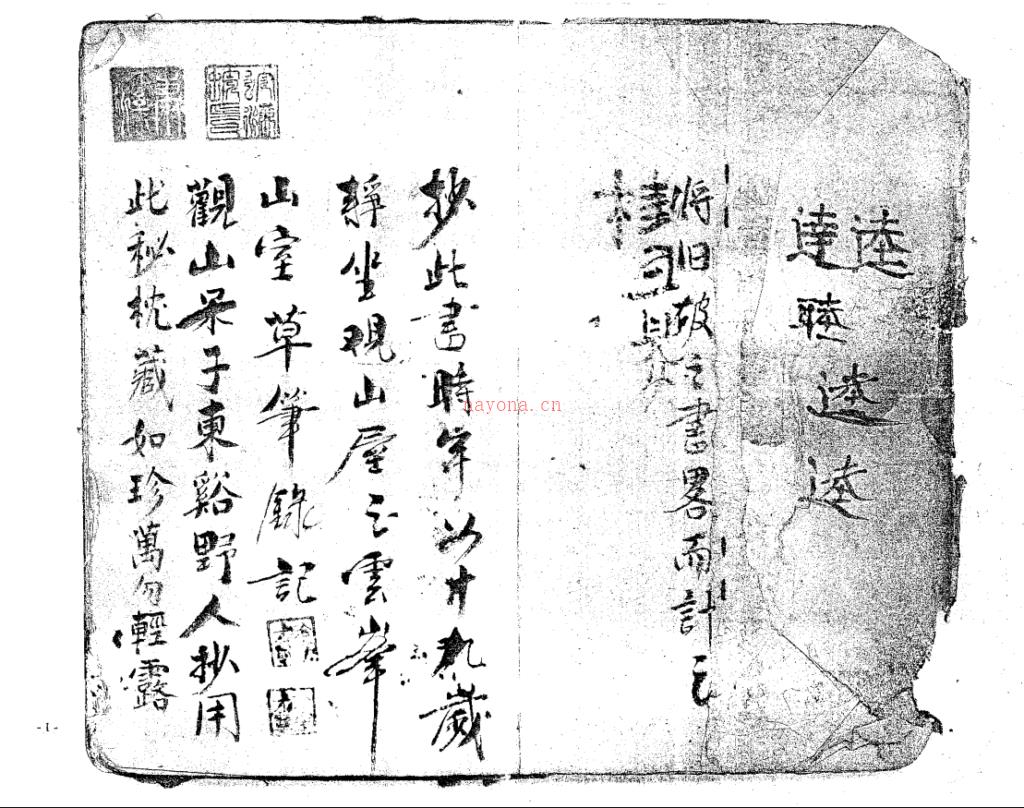 逵
達
睦
逵
逵
将旧破之書畧而計之
抄此書時年以廾九歲
靜坐观山屋之雲峯
山室草筆錄記
觀山呆子東谿野人抄用
此秘枕藏如珍萬勿輕露
nayona.cn
-1-